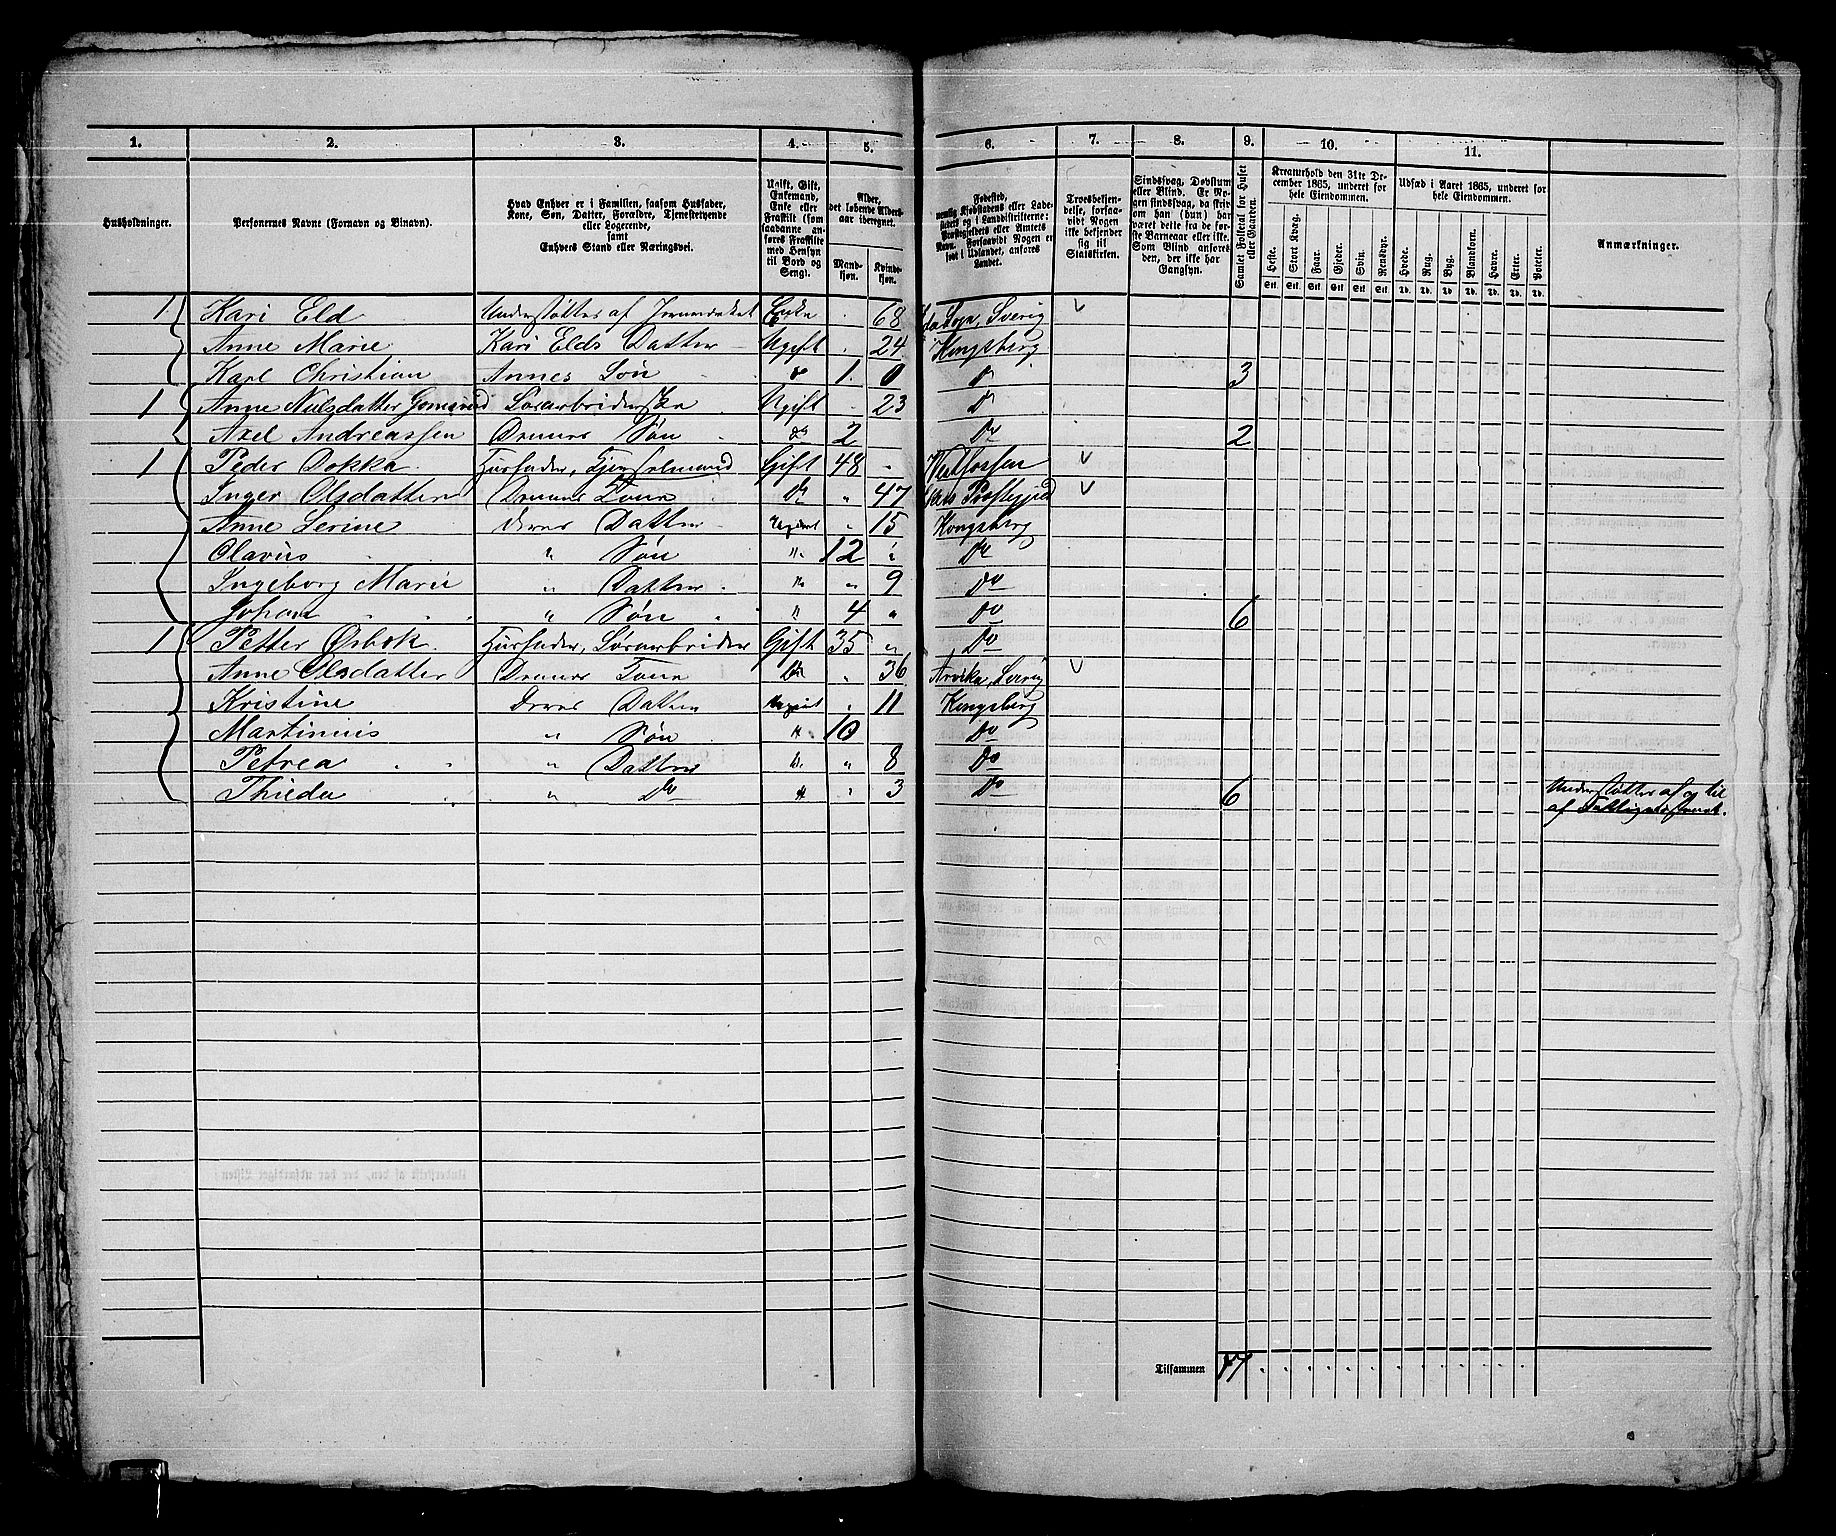 1. 2. 3. 4. 5. 6. 7. 8. 9. 10. 11.
Husholdninger.
Personernes Navne (Fornavn og Binavn).
Hvad Enhver er i Familien, saasom Husfader,
Kone, Søn, Datter, Forældre, Tjenestetyende
eller Logerende,
samt
Enhvers Stand eller Næringsvei.
Ugift, Gift,
Enkemand,
Enke eller
Fraskilt (som
saadanne an-
føres Fraskilte
med Hensyn
til Bord og
Seng).
Alder,
det løbende Alders-
aar iberegnet.
Mand-
kjøn.
Kvinde-
kjøn.
Fødested,
nemlig Kjøbstadens eller Lade-
stedets og i Landdistrikterne:
Præstegjeldets eller Amtets
Navn. Forsaavidt Nogen er
født i Udlandet, anføres
Landet.
Troesbekjen-
delse, forsaa-
vidt Nogen
ikke bekjender
sig til
Statskirken.
Sindssvag, Døvstum
eller Blind. Er No-
gen sindssvag, da skriv
om han (hun) har
været dette fra de før-
ste Barneaar eller ikke.
Som Blind anføres
den, der ikke har
Gangsyn.
Samlet Folketal for Huset
eller Gaarden.
Kreaturhold den 31te De-
cember 1865, underet for
hele Eiendommen.
Heste. Stort Kvæg. Faar. Gjeder. Svin. Rensdyr.
Stk. Stk. Stk. Stk. Stk. Stk.
Udsæd i Aaret 1865, underet for
hele Eiendommen.
Hvede. Rug. Byg. Blandkorn. Havre. Erter. Poteter.
Td. Td. Td. Td. Td. Td. Td.
Anmærkninger.
1 Kari Eld Understøttes af Jernværket Enke 68 Sverig
Anne Marie Kari Elds Datter Ugift 24 Kongsberg
Karl Christian Annes Søn do 1 0 do 3
1 Anne Nielsdatter Løsarbeiderske Ugift 23 do
Axel Andreassen Hennes Søn do 2 do 2
1 Peder Dokka Husfader, Gift 48 Vestfossen
Inger Olsdatter Hannes Kone do 47 Præstegjeld
Anne Serine deres Datter Ugivt 15 Kongsberg
Olavus " Søn " 12 do
Ingeborg Marie " Datter " 9 do
Johan " Søn " 4 " do 6
1 Petter Øsbok Husfader, Løsarbeider Gift 35 " do
Anne Olsdatter Hannes Kone do 36 Arvika, Sverig
Kristine deres Datter Ugivt 11 Kongsberg
Martinius " Søn " 10 do
Petrea " Datter " 8 do
Thieda " do " 3 do 6 Understøttes af og til
af Fattigvæsenet.
Tilsammen 17